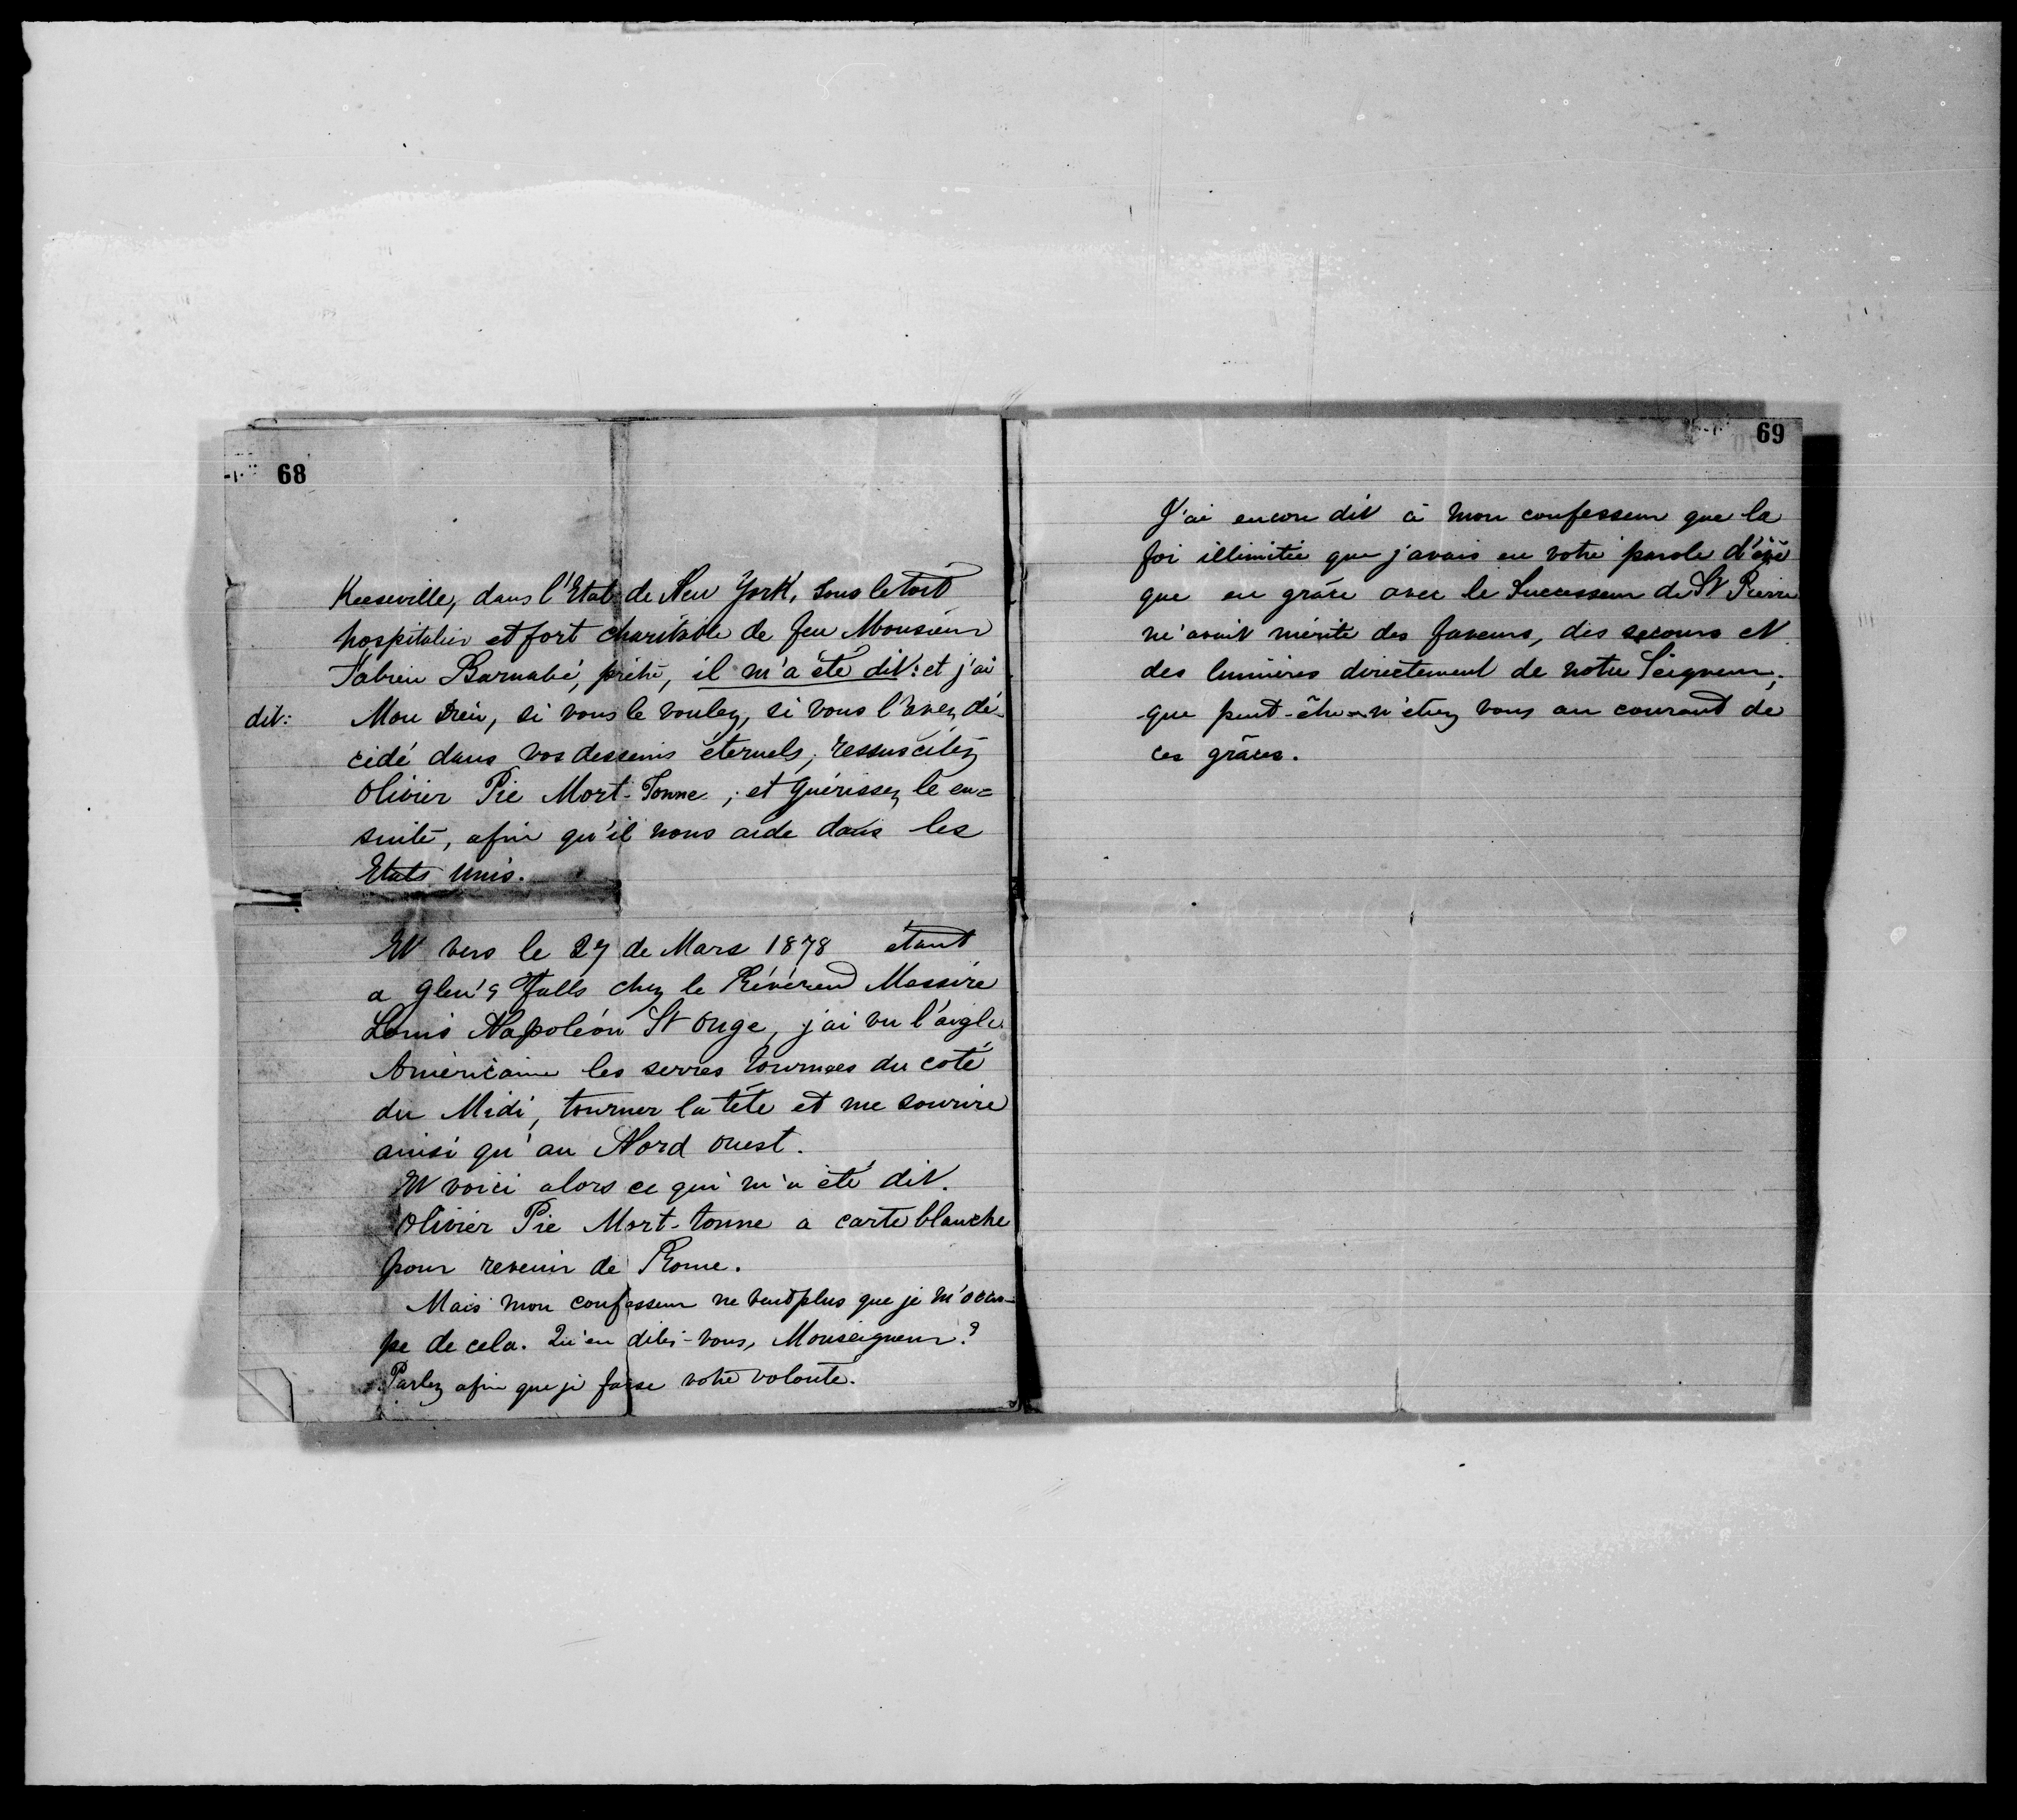 68
Keeseville, dans l'Etat de New York, sous le toit
hospitalier et fort charitable de feu Monsieur
Fabien Barnabé, prêtre, il m'a été dit: et j'ai
dit: Mon Dieu, si vous le voulez, si vous l'avez dé-
cidé dans vos desseins éternels, ressuscitez
Olivier Pie Mort-Tonne; et guérissez le en=
suite, afin qu'il nous aide dans les
Etats Unis.
Et vers le 27 de Mars 1878 étant
a Glen's Falls chez le Révérend Messire
Louis Napoléon St Onge, j'ai vu l'aigle
Américaine les serres tournées du coté
du Midi, tourner la tête et me sourire
ainsi qu'au Nord Ouest.
Et voici alors ce qui m'a été dit.
Olivier Pie Mort-tonne a carte blanche
pour revenir de Rome.
Mais mon confesseur ne veut plus que je m'occu-
pe de cela. Qu'en dites-vous, Monseigneur?
Parlez afin que je fasse votre volonté.
69
J'ai encore dit à mon confesseur que la
foi illimitée que j'avais en votre parole d'évê
que en grâce avec le Successeur de St Pierre
m'avait mérité des faveurs, des secours et
des lumières directement de notre Seigneur;
que peut-être n'étiez vous au courant de
ces grâces.